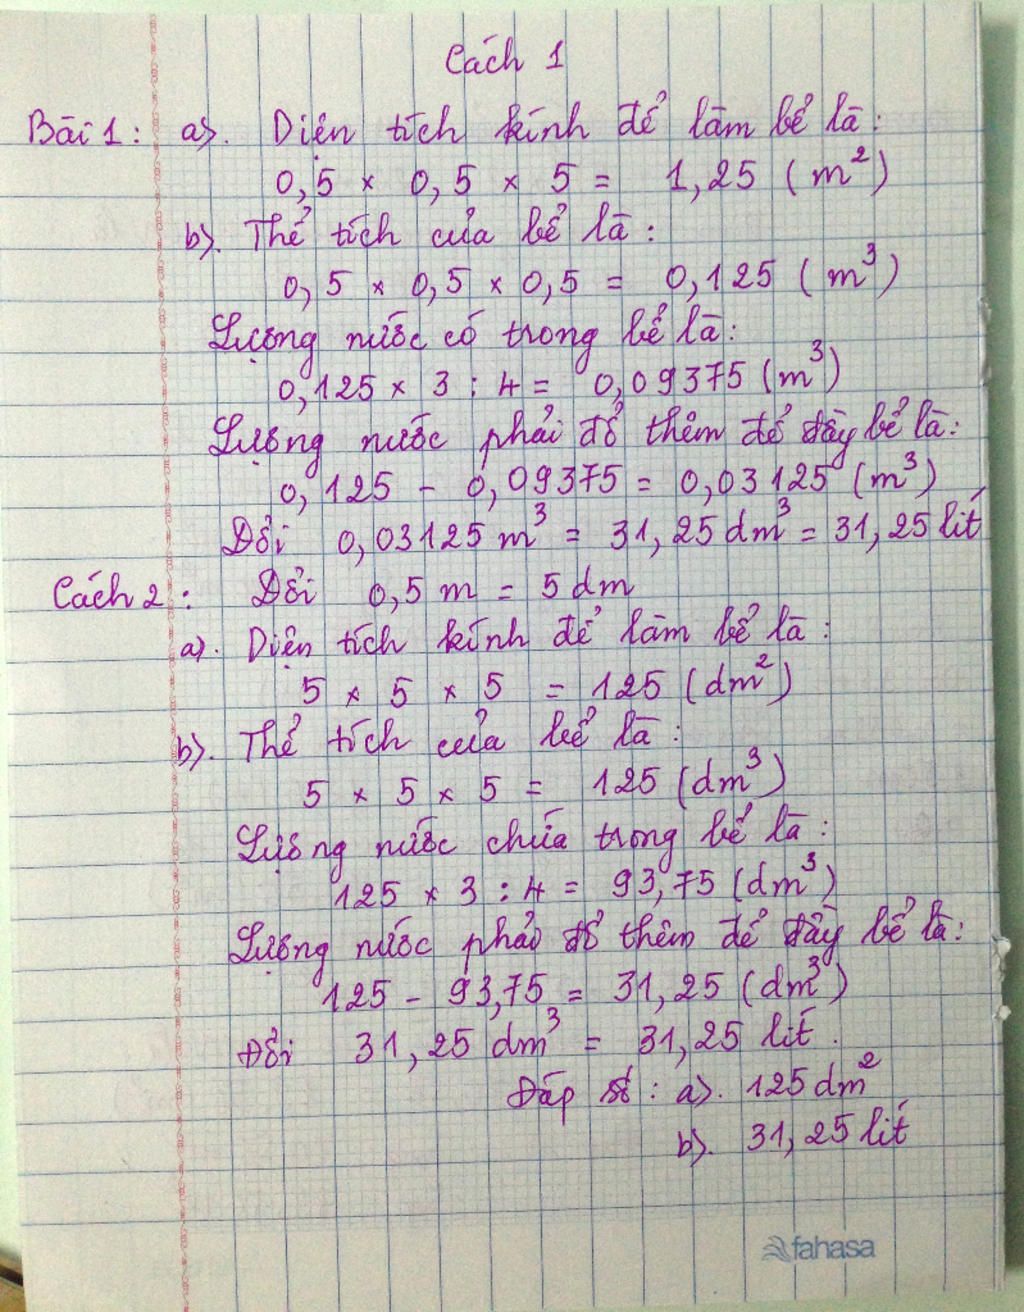 Cách 1
Bài 1: a). Diện tích kính để làm bể là:
0,5 × 0,5 × 5 = 1,25 (m²)
b). Thể tích của bể là:
0,5 × 0,5 × 0,5 = 0,125 (m³)
Lượng nước có trong bể là:
0,125 × 3 : 4 = 0,09375 (m³)
Lượng nước phải đổ thêm để đầy bể là:
0,125 - 0,09375 = 0,03125 (m³)
Đổi 0,03125 m³ = 31,25 dm³ = 31,25 lít
Cách 2: Đổi 0,5 m = 5 dm
a). Diện tích kính để làm bể là:
5 × 5 × 5 = 125 (dm²)
b). Thể tích của bể là:
5 × 5 × 5 = 125 (dm³)
Lượng nước chứa trong bể là:
125 × 3 : 4 = 93,75 (dm³)
Lượng nước phải đổ thêm để đầy bể là:
125 - 93,75 = 31,25 (dm³)
Đổi 31,25 dm³ = 31,25 lít.
Đáp số: a). 125 dm²
b). 31,25 lít
fahasa